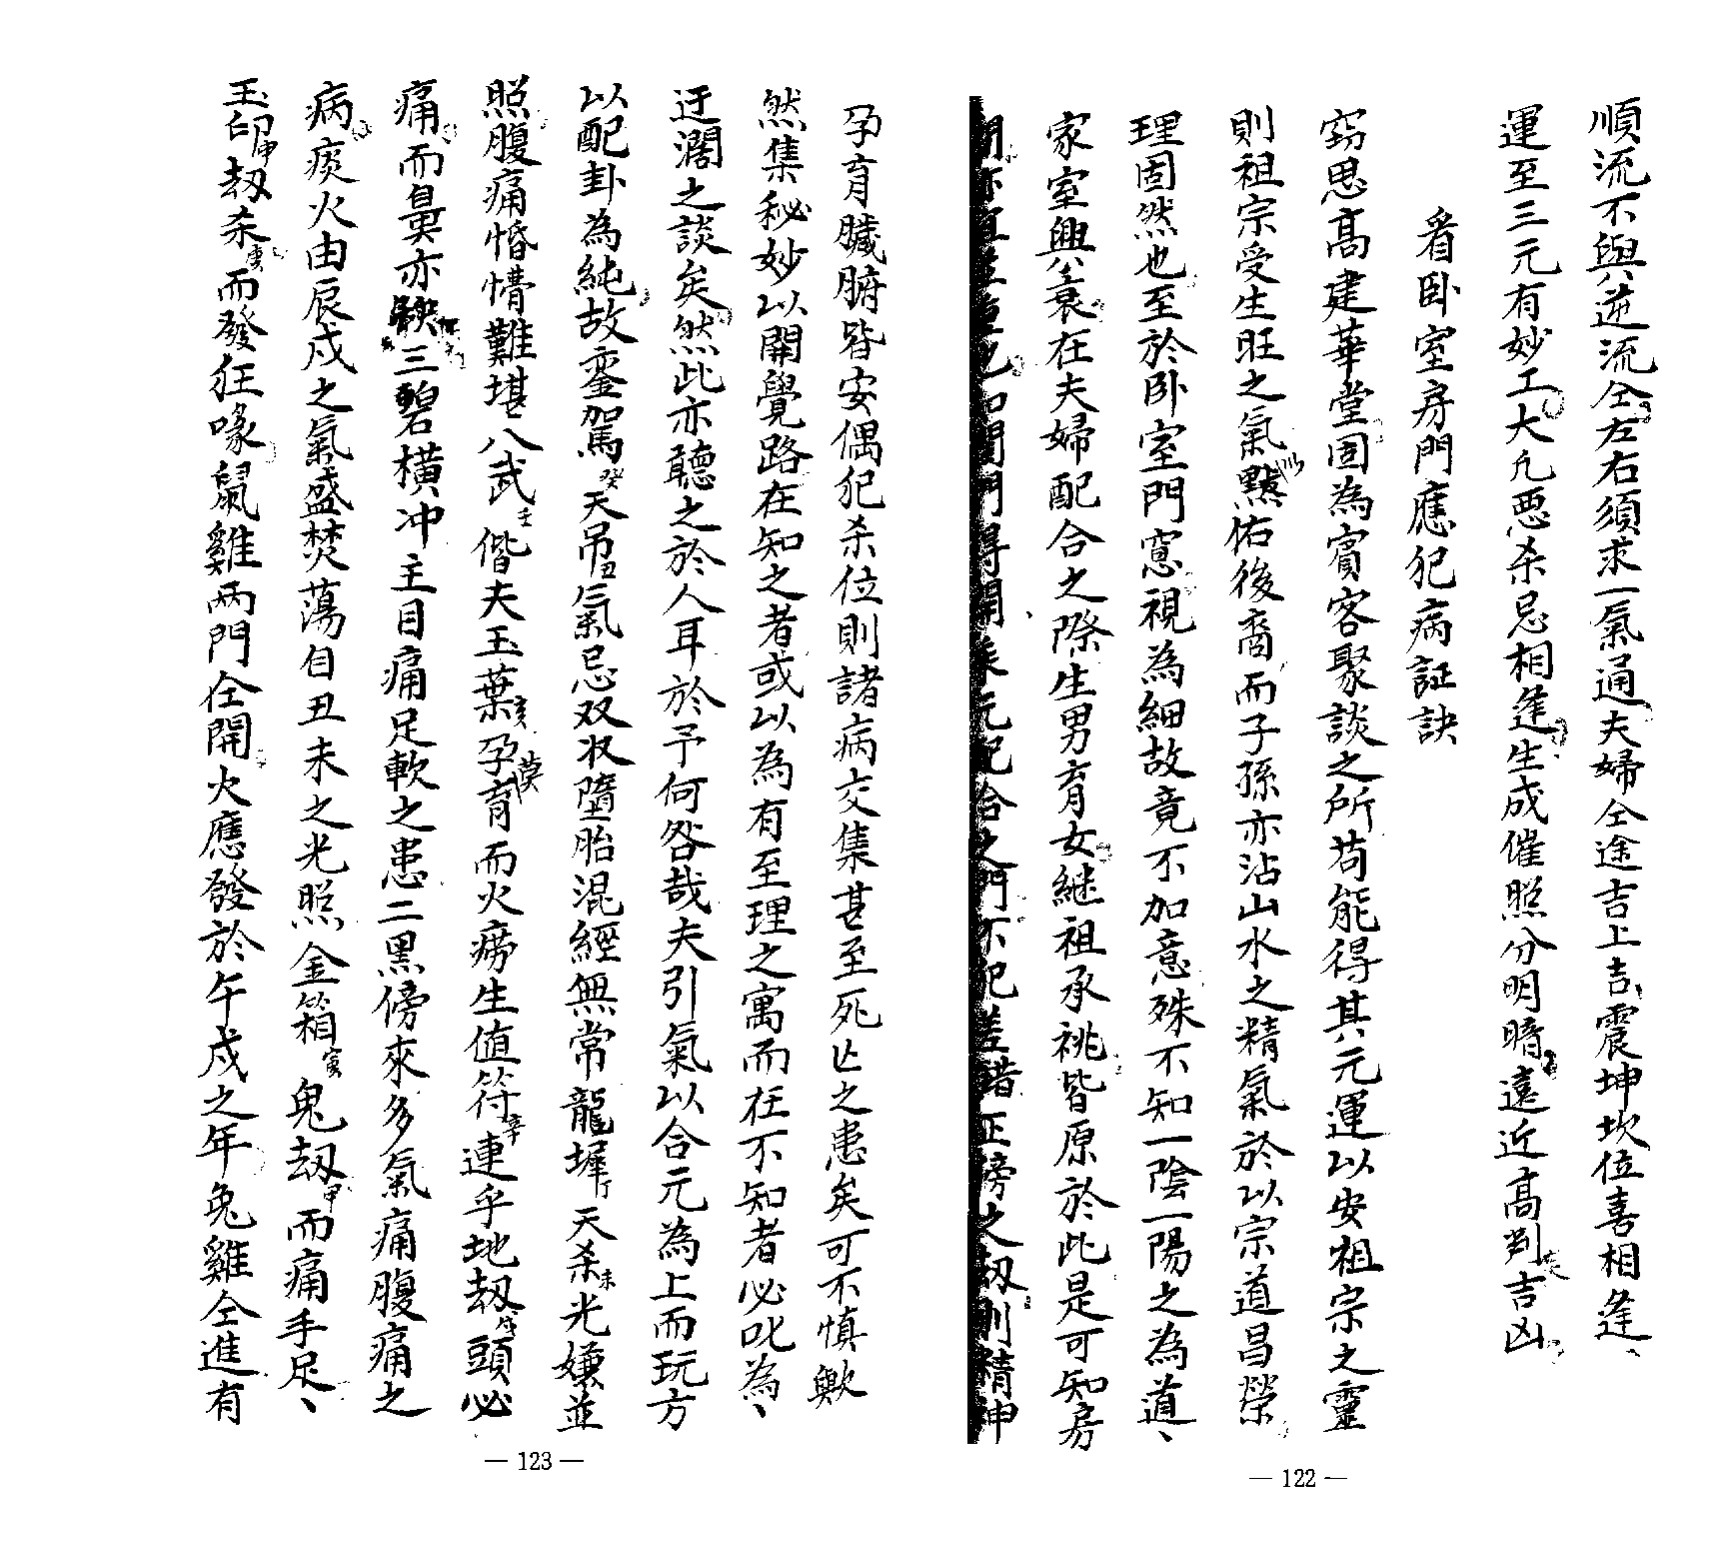 順流不與逆流仝左右須求一氣通夫婦仝途吉上吉震坤坎位喜相逢、
運至三元有妙工大凡悪杀忌相逢生成催照分明暗遠近髙判吉凶
看卧室房門應犯病証訣
窃思髙建華堂固為賓客聚談之所苟能得其元運以安祖宗之靈
則祖宗受生旺之氣黙佑後裔而子孫亦沾山水之精氣於以宗道昌榮
理固然也至於卧室門窓視為細故竟不加意殊不知一陰一陽之為道、
家室興衰在夫婦配合之際生男育女継祖承祧皆原於此是可知房
門得開乘元配合之門不犯差錯正傍之刼則精神
— 122 —
孕育臟腑皆安偶犯杀位則諸病交集甚至死亾之患矣可不慎歟
然集秘妙以開覺路在知之者或以為有至理之寓而在不知者必叱為、
迂濶之談矣然此亦聽之於人耳於予何咎哉夫引氣以合元為上而玩方
以配卦為純故鑾駕癸天吊丑氣忌双双墮胎混經無常龍墀丁天杀未光嫌並
照腹痛惛憒難堪八武壬偕夫玉葉亥孕育而火癆生值符辛連乎地刼戌頭必
痛而鼻亦三碧橫冲主目痛足軟之患二黑傍來多氣痛腹痛之
病痰火由辰戌之氣盛焚蕩自丑未之光照金箱寅鬼刼甲而痛手足、
玉印申刼杀庚而發狂喙鼠雞兩門仝開火應發於午戌之年兔雞仝進有
— 123 —